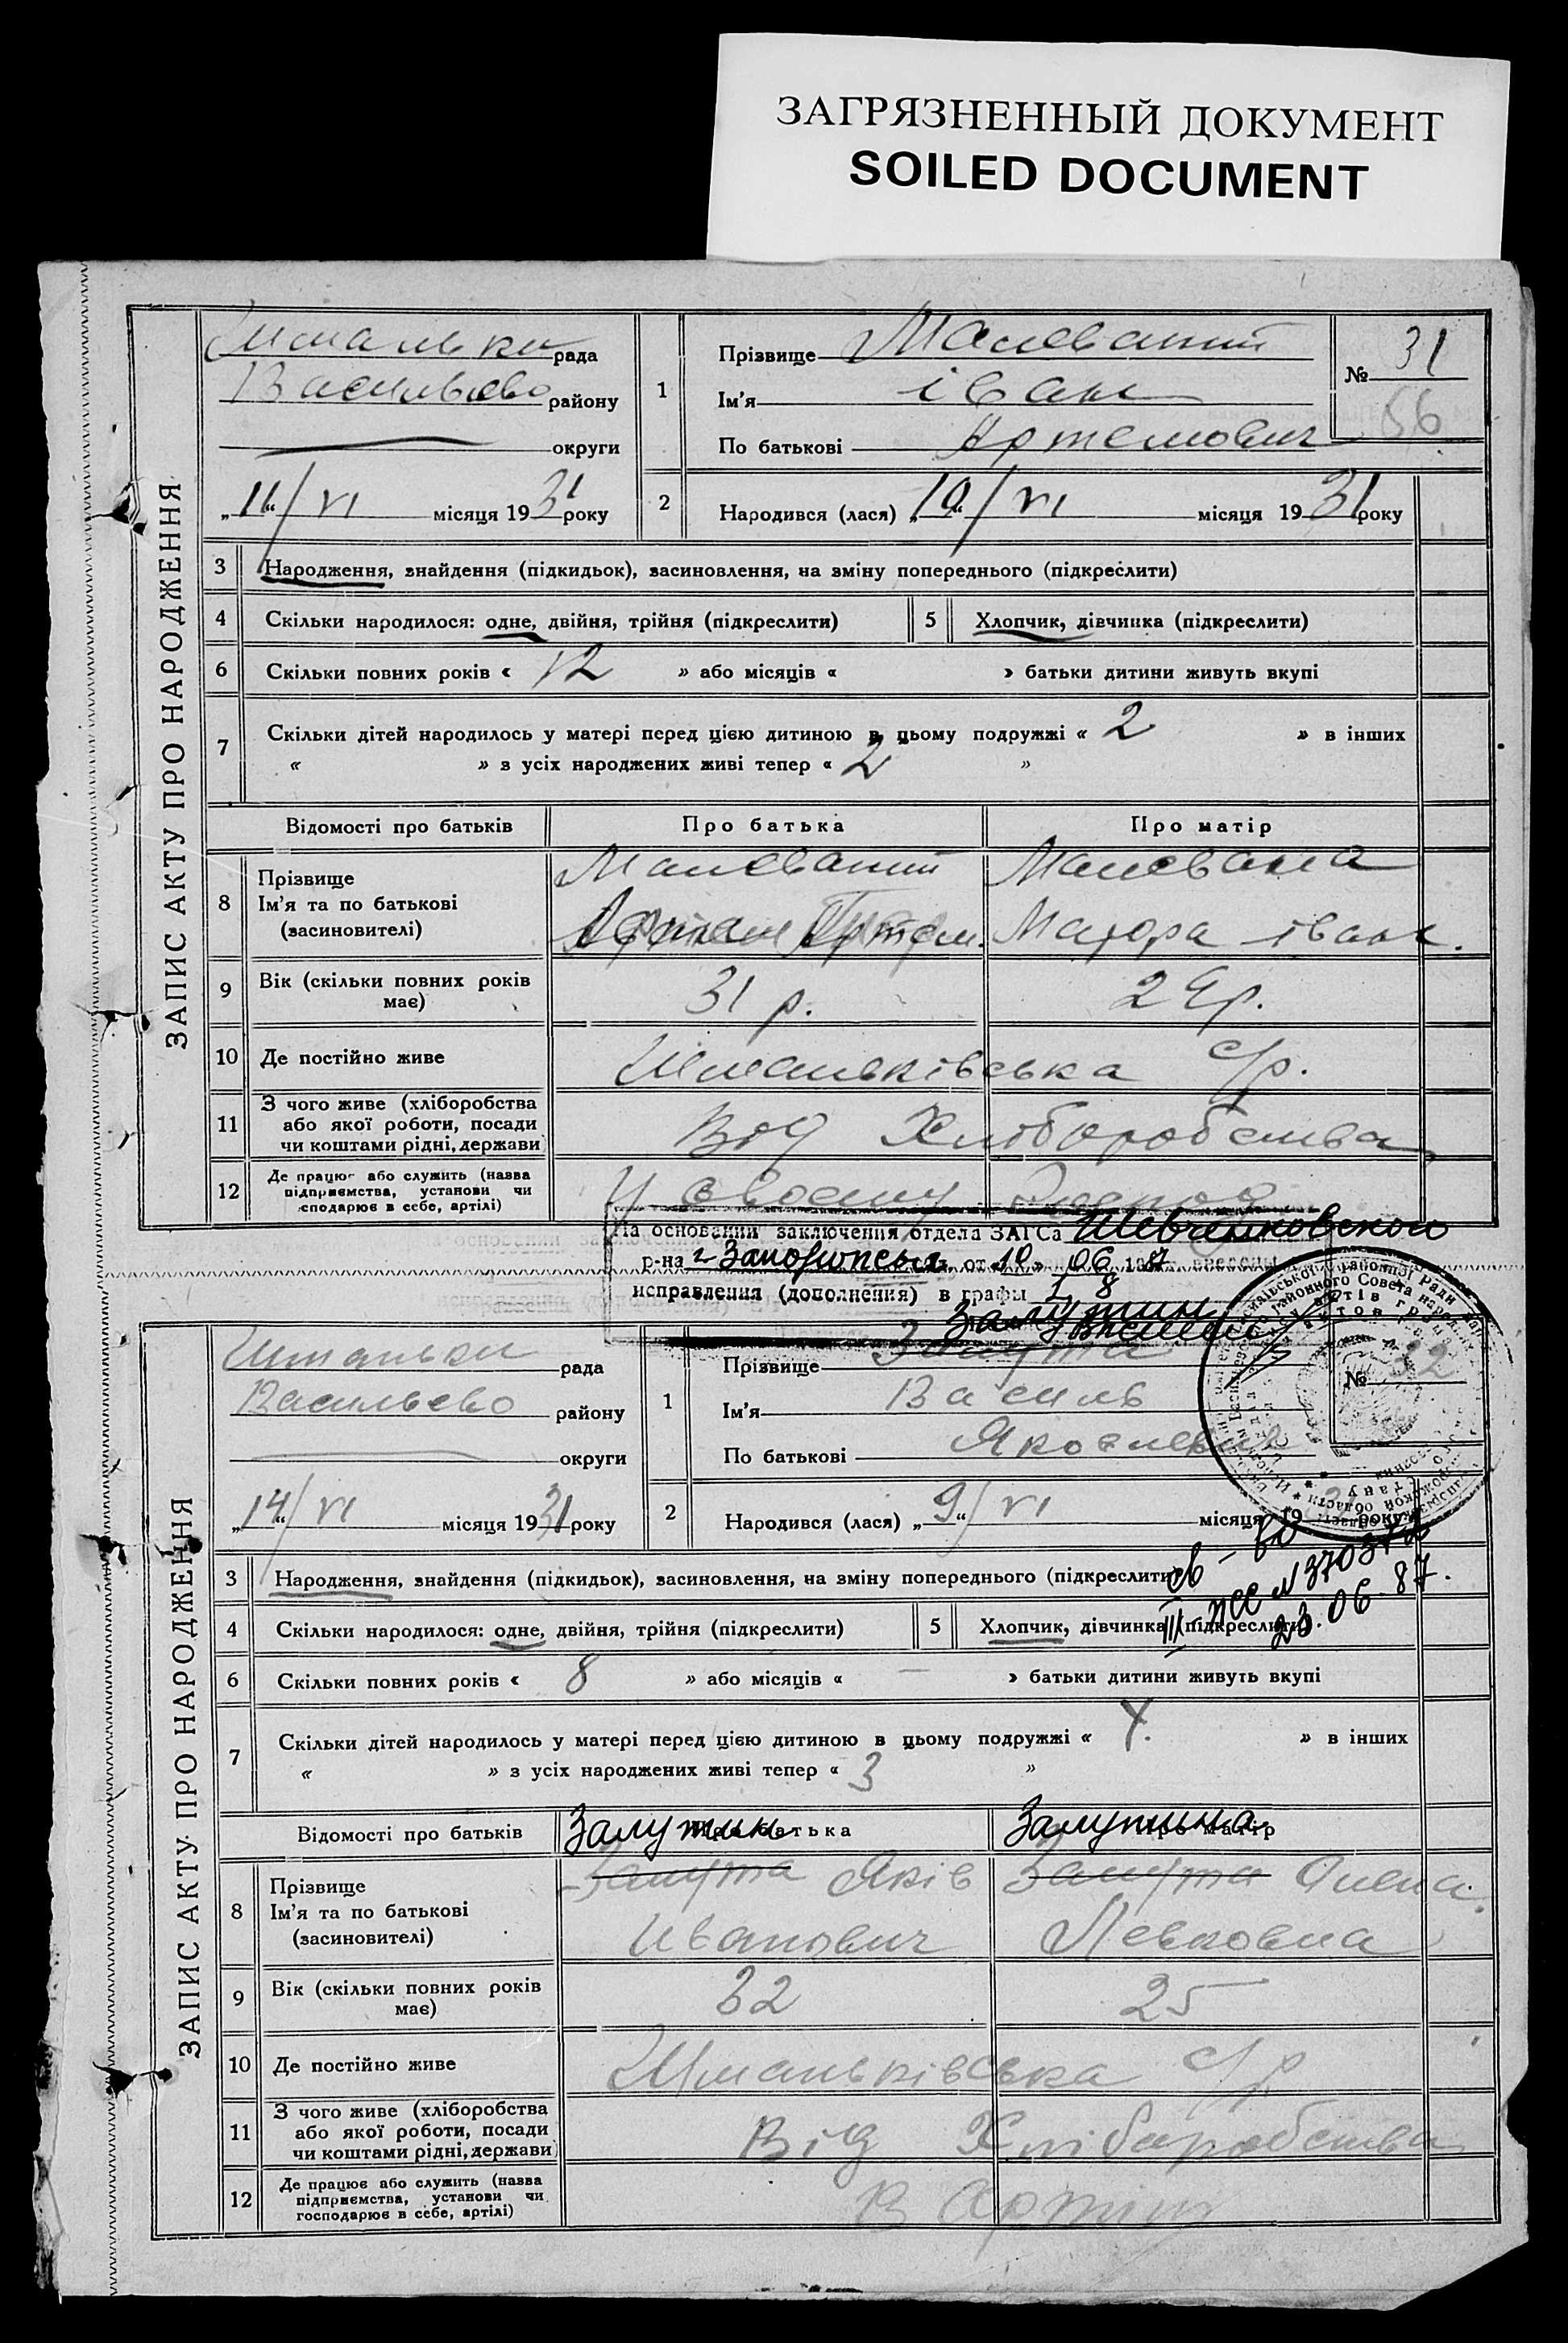 ЗАГРЯЗНЕННЫЙ ДОКУМЕНТ
SOILED DOCUMENT
ЗАПИС АКТУ ПРО НАРОДЖЕННЯ
рада
Васильево району
округи
„11“/VI місяця 1931 року
1
Прізвище Малеваний
Ім'я іван
По батькові Артемович
№ 31
56
2 Народився (лася) „10“/VI місяця 1931 року
3 Народження, знайдення (підкидьок), засиновлення, на зміну попереднього (підкреслити)
4 Скільки народилося: одне, двійня, трійня (підкреслити)
5 Хлопчик, дівчинка (підкреслити)
6 Скільки повних років « 12 » або місяців « » батьки дитини живуть вкупі
7 Скільки дітей народилось у матері перед цією дитиною в цьому подружжі « 2 » в інших
« » з усіх народжених живі тепер « 2 »
Відомості про батьків Про батька Про матір
8 Прізвище
Ім'я та по батькові
(засиновителі)
Малеваний
Артем.
Малевана
іван.
9 Вік (скільки повних років
має)
31 р.
10 Де постійно живе
Шманьківська с/р.
11 З чого живе (хліборобства
або якої роботи, посади
чи коштами рідні, держави)
Від Хліборобства
12 Де працює або служить (назва
підприємства, установи чи
господарює в себе, артілі)
На основании заключения отдела ЗАГСа Шевченковского
р-на г. Запорожья от 10 06 1987
исправления (дополнения) в графы 1, 8
Залутин
ЗАПИС АКТУ ПРО НАРОДЖЕННЯ
Шманьки рада
Васильево району
округи
„14“/VI місяця 1931 року
1
Прізвище Залута
Ім'я Василь
По батькові Яковлевич
№ 32
2 Народився (лася) „9“/VI місяця 193 року
св-во
III ЖС № 370372
23.06.87.
3 Народження, знайдення (підкидьок), засиновлення, на зміну попереднього (підкреслити)
4 Скільки народилося: одне, двійня, трійня (підкреслити)
5 Хлопчик, дівчинка (підкреслити)
6 Скільки повних років « 8 » або місяців « — » батьки дитини живуть вкупі
7 Скільки дітей народилось у матері перед цією дитиною в цьому подружжі « 4. » в інших
« » з усіх народжених живі тепер « 3 »
Відомості про батьків Про батька Про матір
Залутин Залутина
8 Прізвище
Ім'я та по батькові
(засиновителі)
Залута Яків
Иванович
Залута Олена
Левковна
9 Вік (скільки повних років
має)
32
25
10 Де постійно живе
Шманьківська с/р
11 З чого живе (хліборобства
або якої роботи, посади
чи коштами рідні, держави)
Від Хліборобства
12 Де працює або служить (назва
підприємства, установи чи
господарює в себе, артілі)
В Артіли